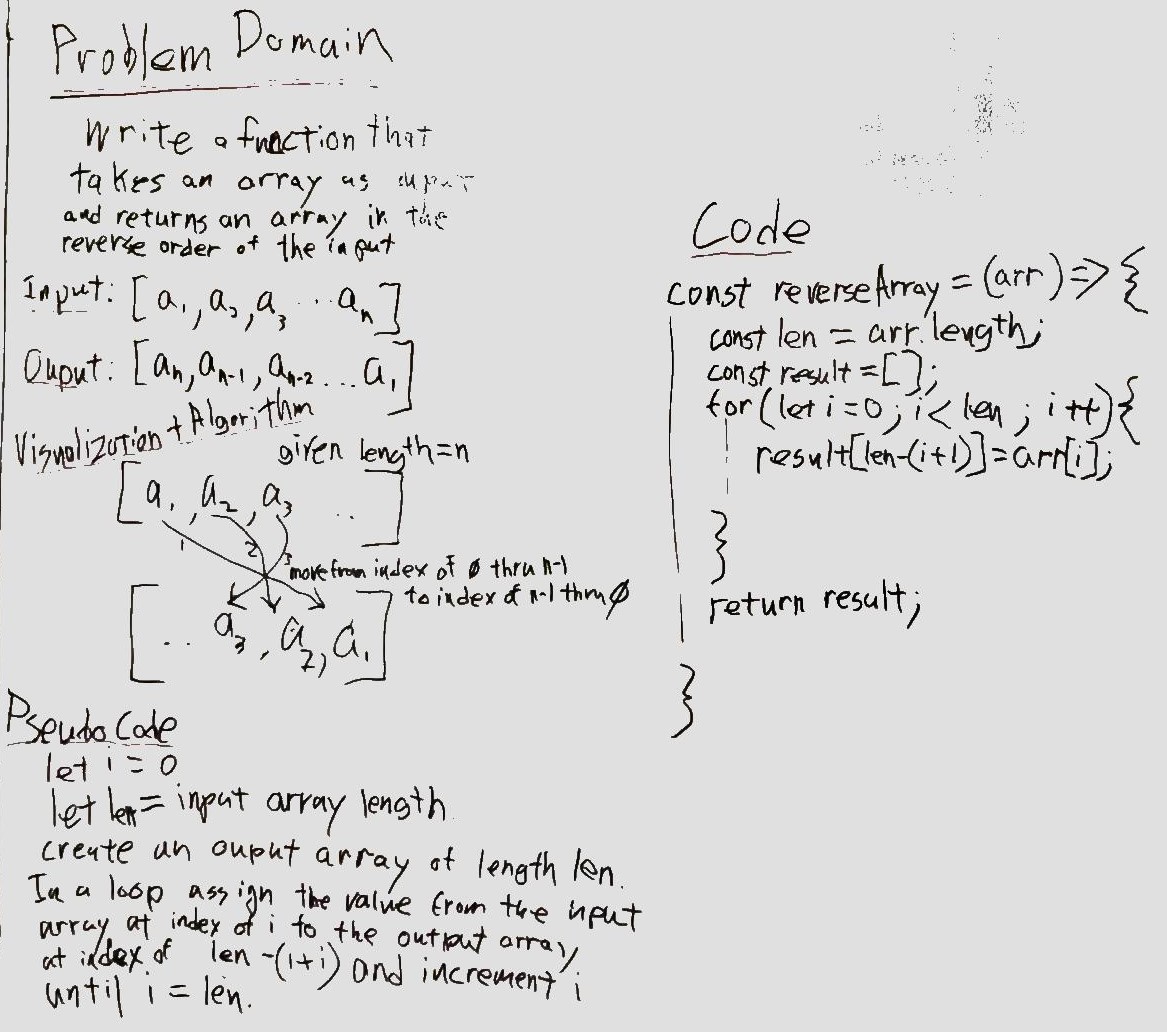 Problem Domain
Write a function that
takes an array as input
and returns an array in the
reverse order of the input
Input: [a₁, a₂, a₃ ... aₙ]
Ouput: [aₙ, aₙ₋₁, aₙ₋₂ ... a₁]
Visualization + Algorithm
given length=n
[a₁, a₂, a₃ ..]
1 2 3
move from index of ø thru n-1
to index of n-1 thru ø
[.. a₃, a₂, a₁]
Pseudo Code
let i = 0
let len = input array length
create an ouput array of length len.
In a loop assign the value from the input
array at index of i to the output array
at index of len -(1+i) and increment i
until i = len.
Code
const reverseArray = (arr) => {
const len = arr.length;
const result = [];
for (let i=0; i < len; i++) {
result[len-(i+1)] = arr[i];
}
return result;
}